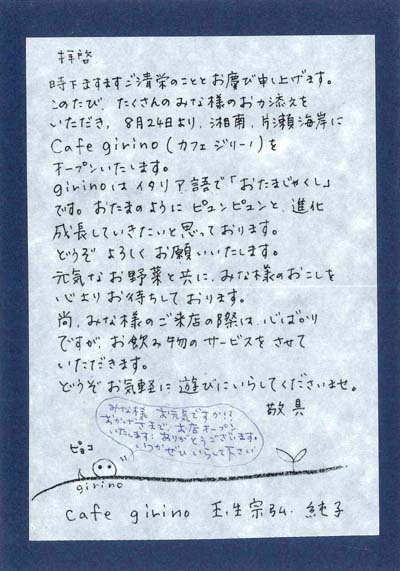 拝啓
時下ますますご清栄のこととお慶び申し上げます。
このたび、たくさんのみな様のお力添えを
いただき、8月24日より、湘南、片瀬海岸に
Cafe girino (カフェ ジリーノ)を
オープンいたします。
girinoはイタリア語で「おたまじゃくし」
です。おたまのように ピュンピュンと、進化
成長していきたいと思っております。
どうぞ よろしくお願いいたします。
元気なお野菜と共に、みな様のおこしを
心よりお待ちしております。
尚、みな様のご来店の際は、心ばかり
ですが、お飲み物のサービスをさせて
いただきます。
どうぞお気軽に遊びにいらしてくださいませ。
敬具
みな様 お元気ですか!?
おかげさまで、お店オープン
いたします! ありがとうございます。
いつかぜひ いらして下さい
ピョコ
girino
Cafe girino 壬生宗弘、純子